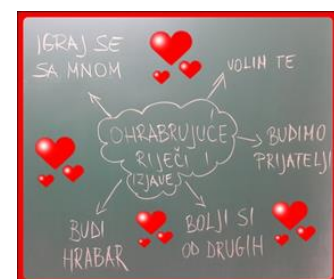 IGRAJ SE
SA MNOM
VOLIN TE
OHRABRUJUĆE
RIJEČI I
IZJAVE
BUDIMO
PRIJATELJI
BUDI
HRABAR
BOLJI SI
OD DRUGIH